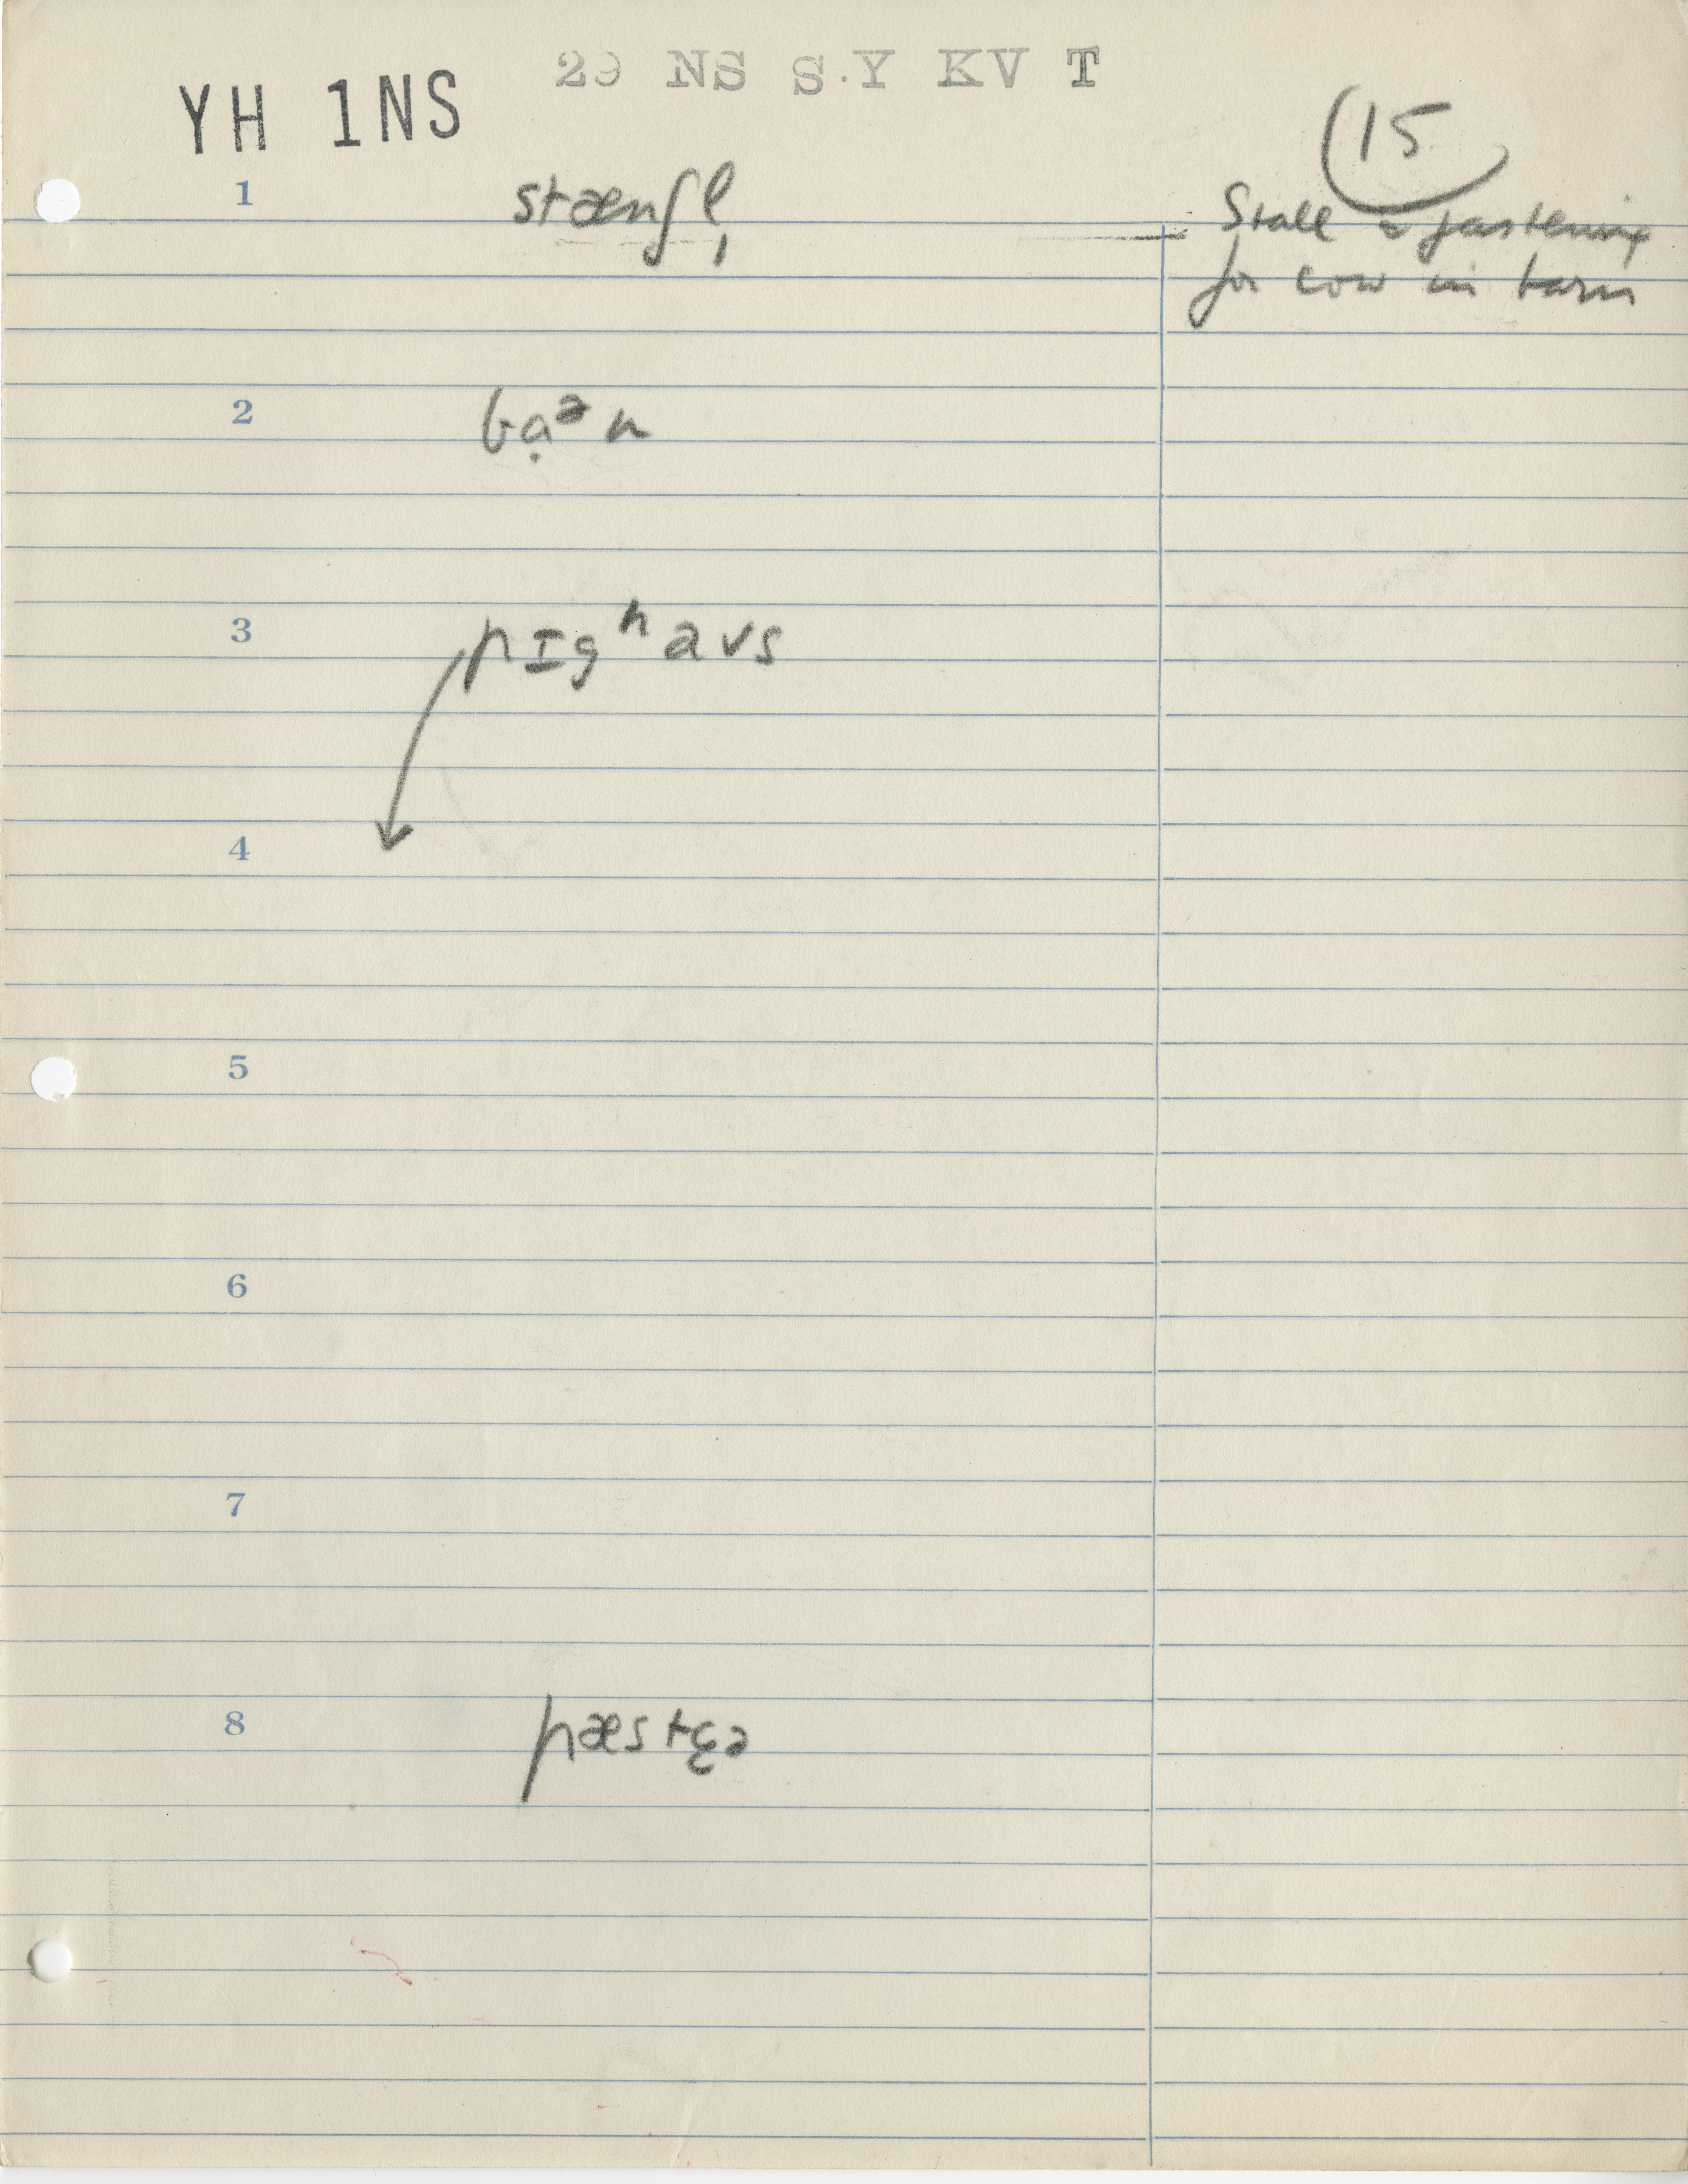 29 NS S.Y KV T
YH 1NS
15
1 stænʃl̩
Stall & fastening
for cow in barn
2 bạᵊn
3 pɪgʰaʊs
4
5
6
7
8 pæstʃɛə